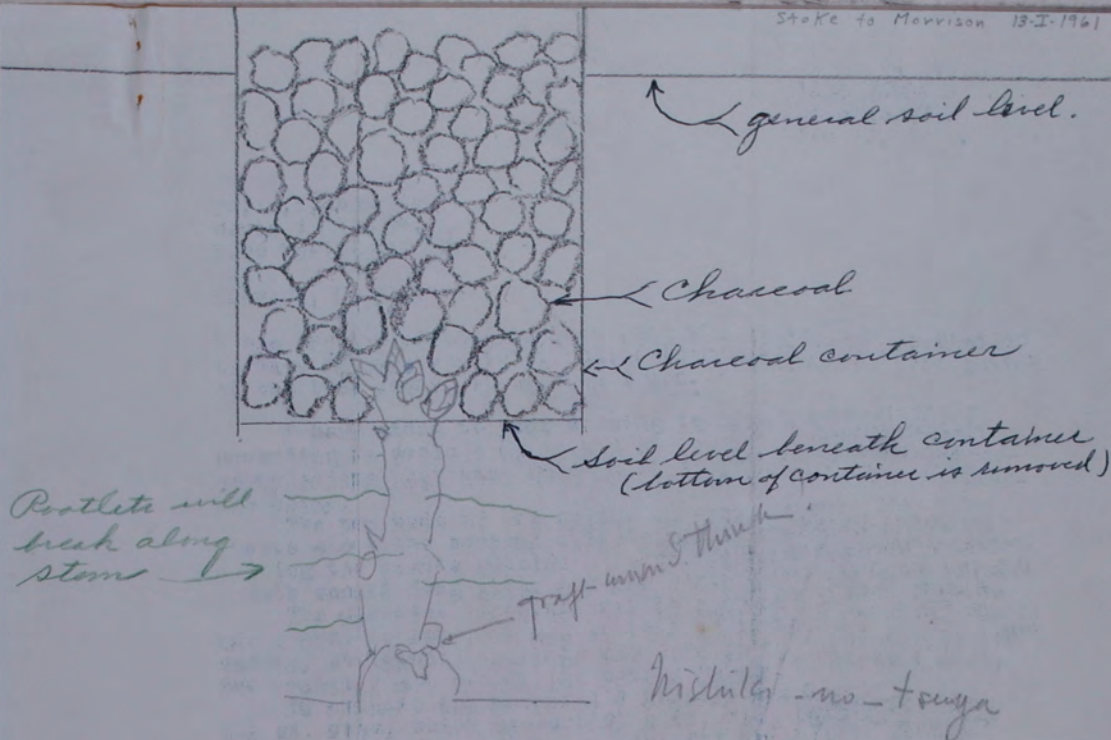 Stoke to Morrison 13-I-1961
general soil level.
Charcoal
Charcoal container
Soil level beneath container
(bottom of container is removed)
Rootlets will
break along
stem
graft-union S. think.
Nishiki-no-tsuya